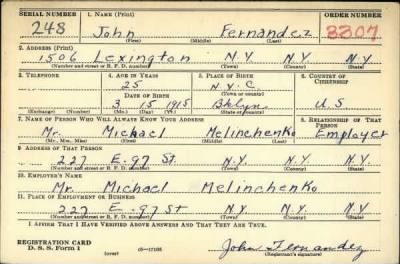 SERIAL NUMBER 1. NAME (Print) ORDER NUMBER
248 John Fernandez 3307
(First) (Middle) (Last)
2. ADDRESS (Print)
1506 Lexington N.Y. N.Y. N.Y.
(Number and street or R. F. D. number) (Town) (County) (State)
3. TELEPHONE 4. AGE IN YEARS 5. PLACE OF BIRTH 6. COUNTRY OF CITIZENSHIP
25 N.Y.C.
DATE OF BIRTH (Town or county)
3 15 1915 Bklyn U S
(Exchange) (Number) (Mo.) (Day) (Yr.) (State or country)
7. NAME OF PERSON WHO WILL ALWAYS KNOW YOUR ADDRESS 8. RELATIONSHIP OF THAT PERSON
Mr. Michael Melinchenko Employer
(Mr., Mrs., Miss) (First) (Middle) (Last)
9. ADDRESS OF THAT PERSON
227 E. 97 St. N.Y. N.Y. N.Y.
(Number and street or R. F. D. number) (Town) (County) (State)
10. EMPLOYER'S NAME
Mr. Michael Melinchenko
11. PLACE OF EMPLOYMENT OR BUSINESS
227 E. 97 St N.Y. N.Y. N.Y.
(Number and street or R. F. D. number) (Town) (County) (State)
I AFFIRM THAT I HAVE VERIFIED ABOVE ANSWERS AND THAT THEY ARE TRUE.
REGISTRATION CARD
D. S. S. Form 1 (over) 16-17105 John Fernandez
(Registrant's signature)